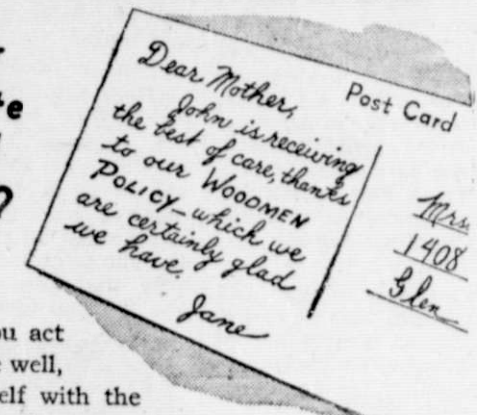 Post Card
Dear Mother,
John is receiving
the best of care, thanks
to our WOODMEN
POLICY—which we
are certainly glad
we have.
Jane
Mrs.
1408
Glen
?
ou act
well,
elf with the